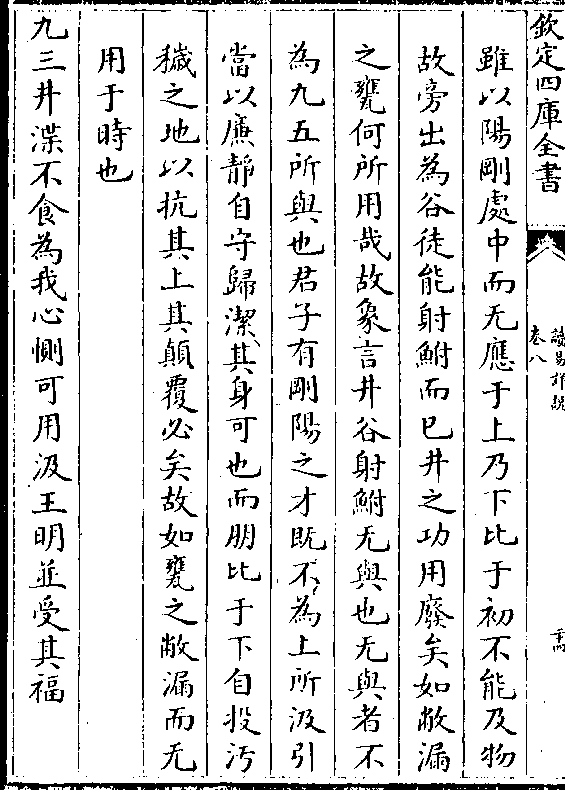 欽定四庫全書
讀易詳說
卷八
雖以陽剛處中而无應于上乃下比于初不能及物
故旁出為谷徒能射鮒而已井之功用廢矣如敝漏
之甕何所用哉故象言井谷射鮒无與也无與者不
為九五所與也君子有剛陽之才既不為上所汲引
當以廉靜自守歸潔其身可也而朋比于下自投汚
穢之地以抗其上其顛覆必矣故如甕之敝漏而无
用于時也
九三井渫不食為我心惻可用汲王明並受其福